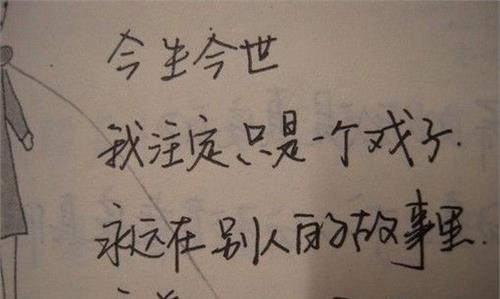 今生今世
我注定、只是一个戏子.
永远在别人的故事里